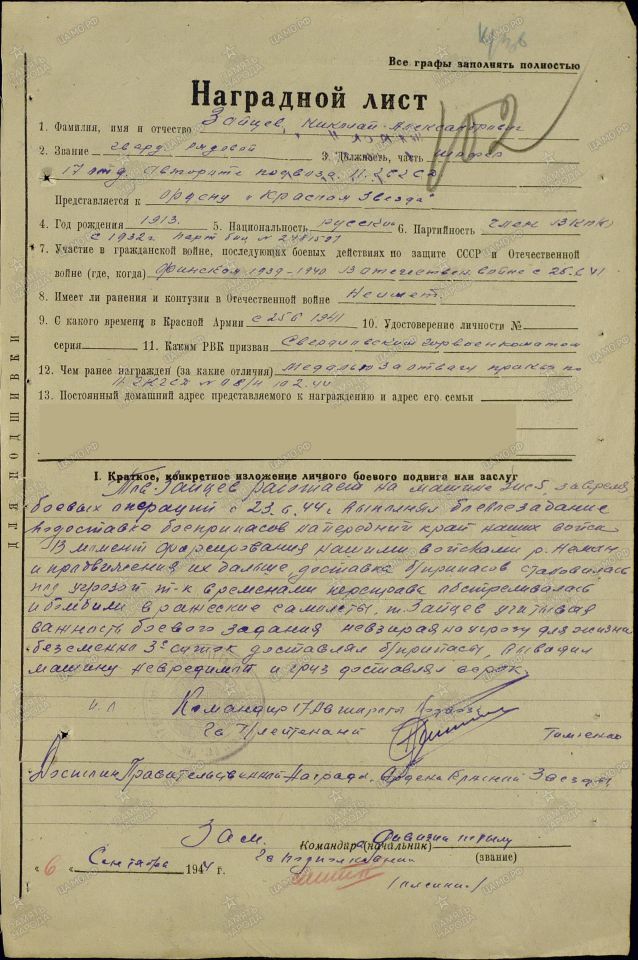 Все графы заполнять полностью
Наградной лист
102
1. Фамилия, имя и отчество Зайцев, Николай Александрович
2. Звание гвард. рядовой 3. Должность, часть шофер
17 отд. Авторота подвоза 11 2С2СД
Представляется к ордену „Красная Звезда"
4. Год рождения 1913. 5. Национальность русский 6. Партийность член ВКП(б)
с 1932г парт бил № 2481501
7. Участие в гражданской войне, последующих боевых действиях по защите СССР и Отечественной
войне (где, когда) Финской 1939-1940 В отечествен. войне с 25.6.41
8. Имеет ли ранения и контузии в Отечественной войне Не имеет.
9. С какого времени в Красной Армии с 25 6 1941 10. Удостоверение личности №
серия 11. Каким РВК призван Свердловским горвоенкоматом
12. Чем ранее награжден (за какие отличия) Медалью За отвагу приказ по
13. Постоянный домашний адрес представляемого к награждению и адрес его семьи
ДЛЯ ПОДШИВКИ
I. Краткое, конкретное изложение личного боевого подвига или заслуг
Тов. Зайцев работает на машине Зис 5, за время
боевых операций с 23.6.44г выполнял боевое задание
по доставке боеприпасов на передний край наших войск
В момент форсирования нашими войсками р. Неман
и продвижения их дальше, доставка б/припасов становилась
под угрозой т-к временами переправа обстреливалась
и бомбили вражеские самолеты, т. Зайцев учитывая
важность боевого задания невзирая на угрозу для жизни
безсменно 3е суток доставлял б/припасы, выводил
машину невредимой и груз доставлял в срок.
Командир 17 Авто роты подвоза
гв лейтенант
Достоин Правительственной Награды. Ордена Красной Звезды
Зам. Командир (начальник) дивизии по тылу
гв подполковник (звание)
„6" Сентября 1944 г.
ЦАМО.РФ
ПАМЯТЬ НАРОДА